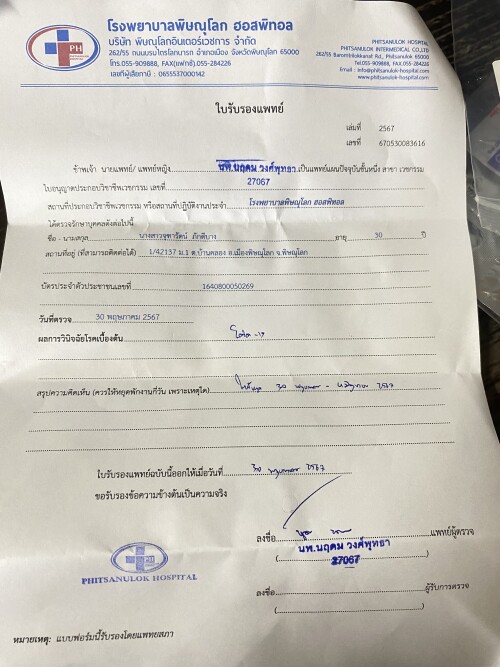 PH
โรงพยาบาลพิษณุโลก ฮอสพิทอล
บริษัท พิษณุโลกอินเตอร์เวชการ จำกัด
262/55 ถนนบรมไตรโลกนารถ อำเภอเมือง จังหวัดพิษณุโลก 65000
โทร.055-909888, FAX(แฟกซ์).055-284226
เลขที่ผู้เสียภาษี : 0655537000142
PHITSANULOK HOSPITAL
PHITSANULOK INTERMEDICAL CO.,LTD
262/55 Baromtrilokkanat Rd., Phitsanulok, 65000
Tel.055-909888, FAX.055-284226
Email : info@phitsanulok-hospital.com
www.phitsanulok-hospital.com
ใบรับรองแพทย์
เล่มที่ 2567
เลขที่ 670530083616
ข้าพเจ้า นายแพทย์/ แพทย์หญิง นพ.นฤดม วงศ์พุทธา เป็นแพทย์แผนปัจจุบันชั้นหนึ่ง สาขา เวชกรรม
ใบอนุญาตประกอบวิชาชีพเวชกรรม เลขที่ 27067
สถานที่ประกอบวิชาชีพเวชกรรม หรือสถานที่ปฏิบัติงานประจำ โรงพยาบาลพิษณุโลก ฮอสพิทอล
ได้ตรวจรักษาบุคคลดังต่อไปนี้
ชื่อ - นามสกุล นางสาวจุฑารัตน์ ภักดีบาง อายุ 30 ปี
สถานที่อยู่ (ที่สามารถติดต่อได้) 1/42137 ม.1 ต.บ้านคลอง อ.เมืองพิษณุโลก จ.พิษณุโลก
บัตรประจำตัวประชาชนเลขที่ 1640800050269
วันที่ตรวจ 30 พฤษภาคม 2567
ผลการวินิจฉัยโรคเบื้องต้น โควิด-19
สรุปความคิดเห็น (ควรให้หยุดพักงานกี่วัน เพราะเหตุใด) 30 พฤษภาคม - 2567
ใบรับรองแพทย์ฉบับนี้ออกให้เมื่อวันที่ 30 พฤษภาคม 2567
ขอรับรองข้อความข้างต้นเป็นความจริง
ลงชื่อ แพทย์ผู้ตรวจ
( นพ.นฤดม วงศ์พุทธา )
27067
PHITSANULOK HOSPITAL
ลงชื่อ ผู้รับการตรวจ
( )
หมายเหตุ: แบบฟอร์มนี้รับรองโดยแพทยสภา